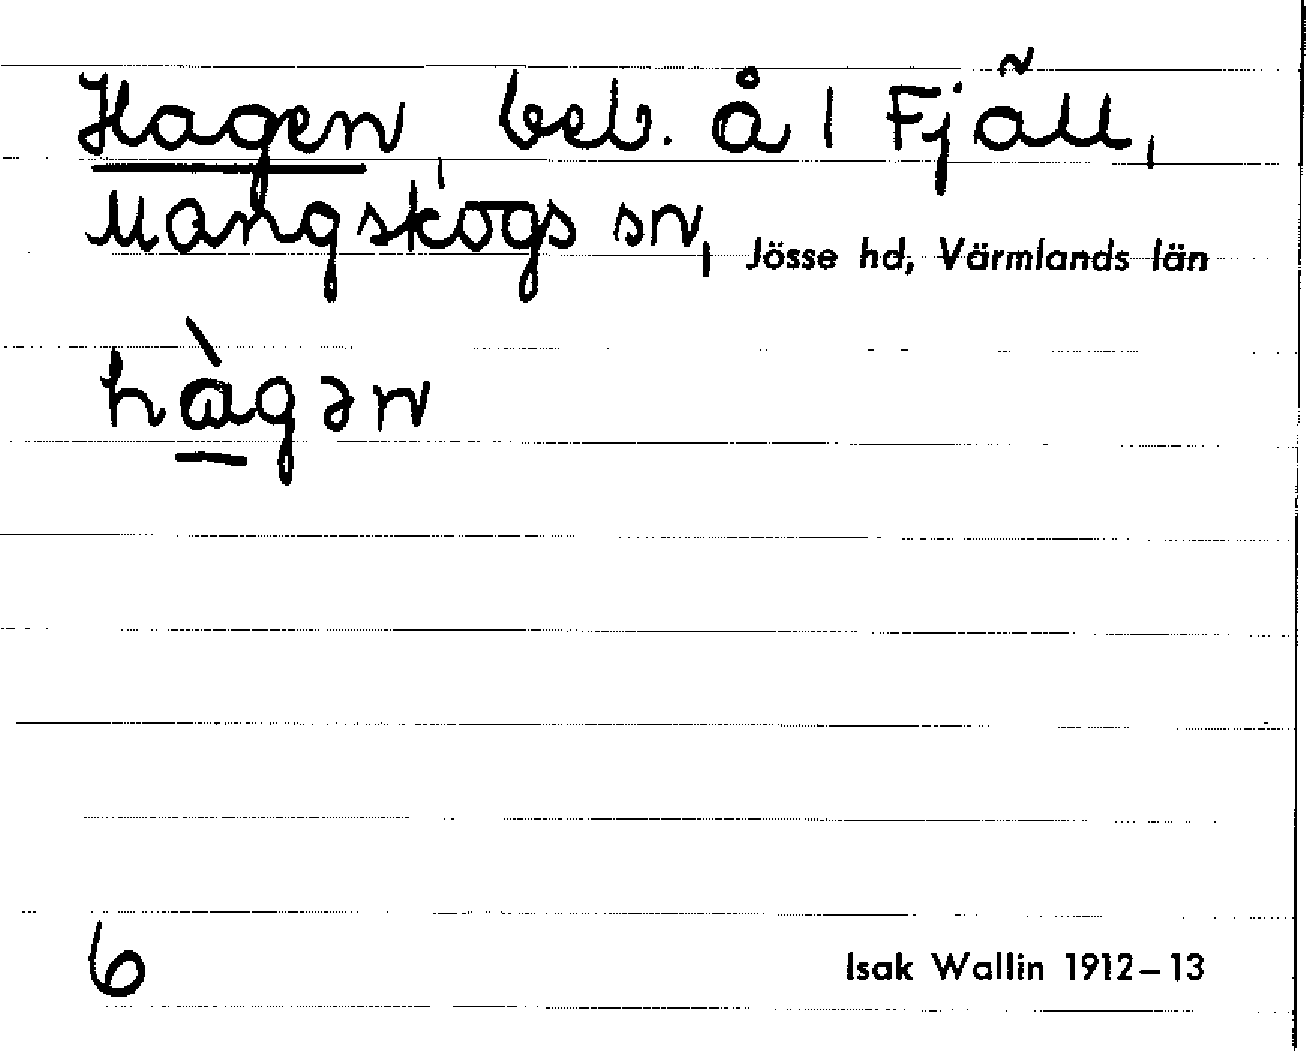 Hagen, beb. å 1 Fjäll,
Mangskogs sn, Jösse hd, Värmlands län
hàgən
6
Isak Wallin 1912–13